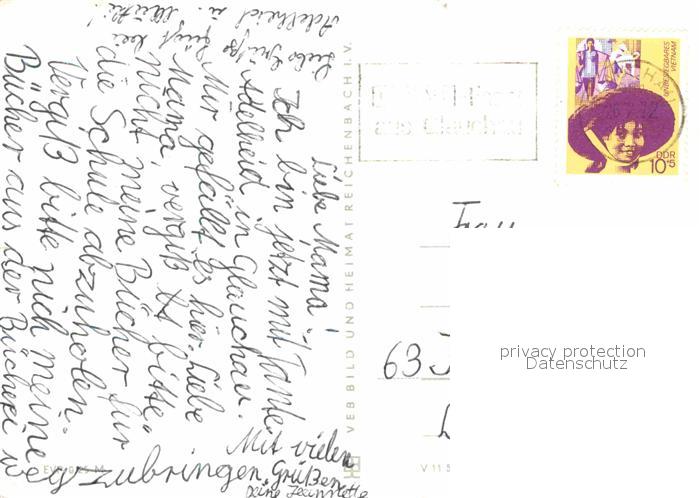 Liebe Mama!
Ich bin jetzt mit Tante
Adelheid in Glauchau.
Mir gefällt es hir. Liebe
Mama vergiß bitte
nicht meine Bücher für
die Schule abzuholen.
Vergiß bitte nich meine
Bücher aus der Bücherei weg
zubringen.
Mit vielen
Grüßen
Deine
Liebe Grüße
Adelheid u.
VEB BILD UND HEIMAT REICHENBACH I. V.
aus Glauchau
UNBESIEGBARES
VIETNAM
DDR
10+5
Frau
63
V 11 5
privacy protection
Datenschutz